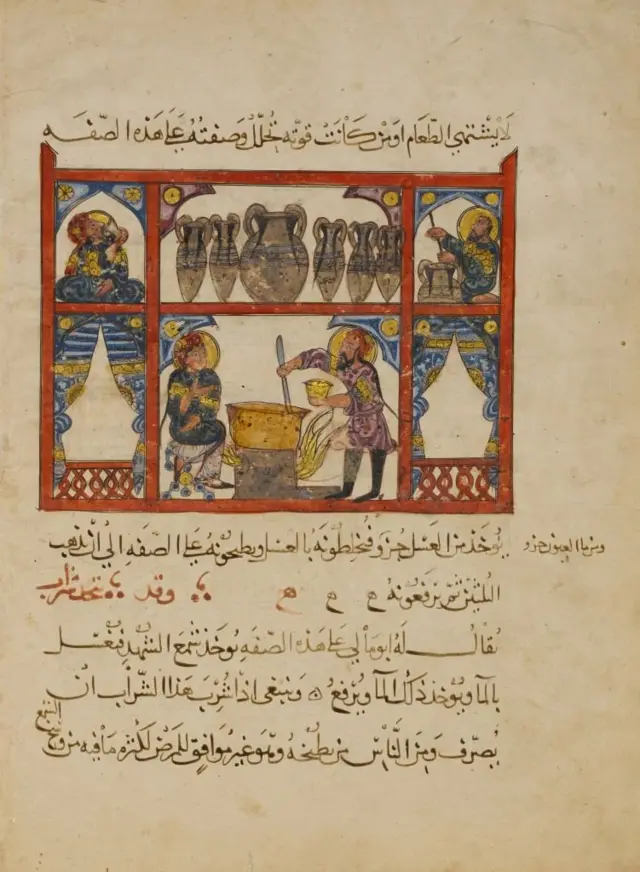 لا يشتهي الطعام او من كانت قوته تحلل وصفته على هذه الصفه
يوخذ من العسل جزو فتخلطونه بالعسل ويطبخونه على الصفه الى ان يذهب
ومن ما العيون جزو
الثلثين ثم يرفعونه ح ح ح وقد تتخذ شراب
يقال له ابومالي على هذه الصفه يوخذ شمع الشهد فيغسل
بالما ويوخذ ذلك الما ويرفع وينبغي اذا شرب هذا الشراب ان
يصرف ومن الناس من يطبخه وهو غير موافق للمرض لكثره ما فيه من وسخ
الشمع